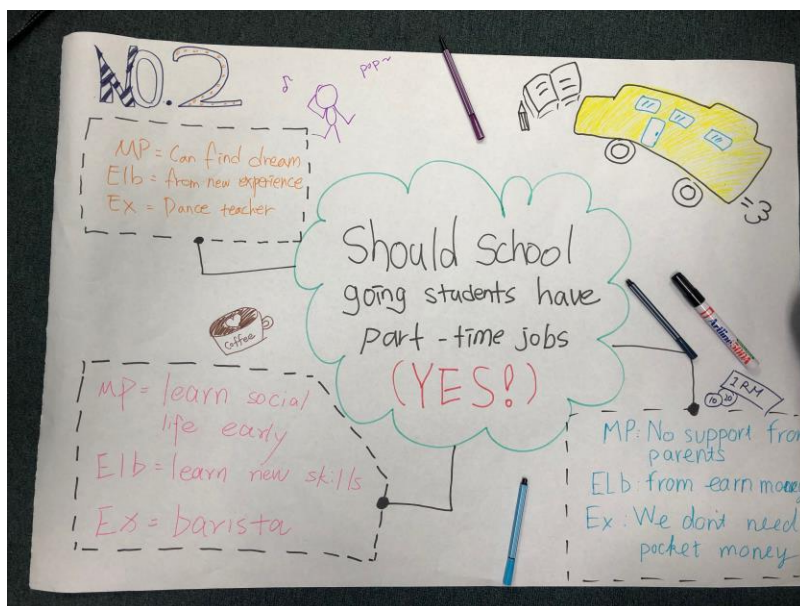 NO.2
pop~
MP = Can find dream
Elb = from new experience
Ex = Dance teacher
Should school
going students have
part-time jobs
(YES!)
Coffee
MP = learn social
life early
Elb = learn new skills
Ex = barista
1RM
10 20
MP: No support from
parents
ELb: from earn money
Ex: We don't need
pocket money
Artline